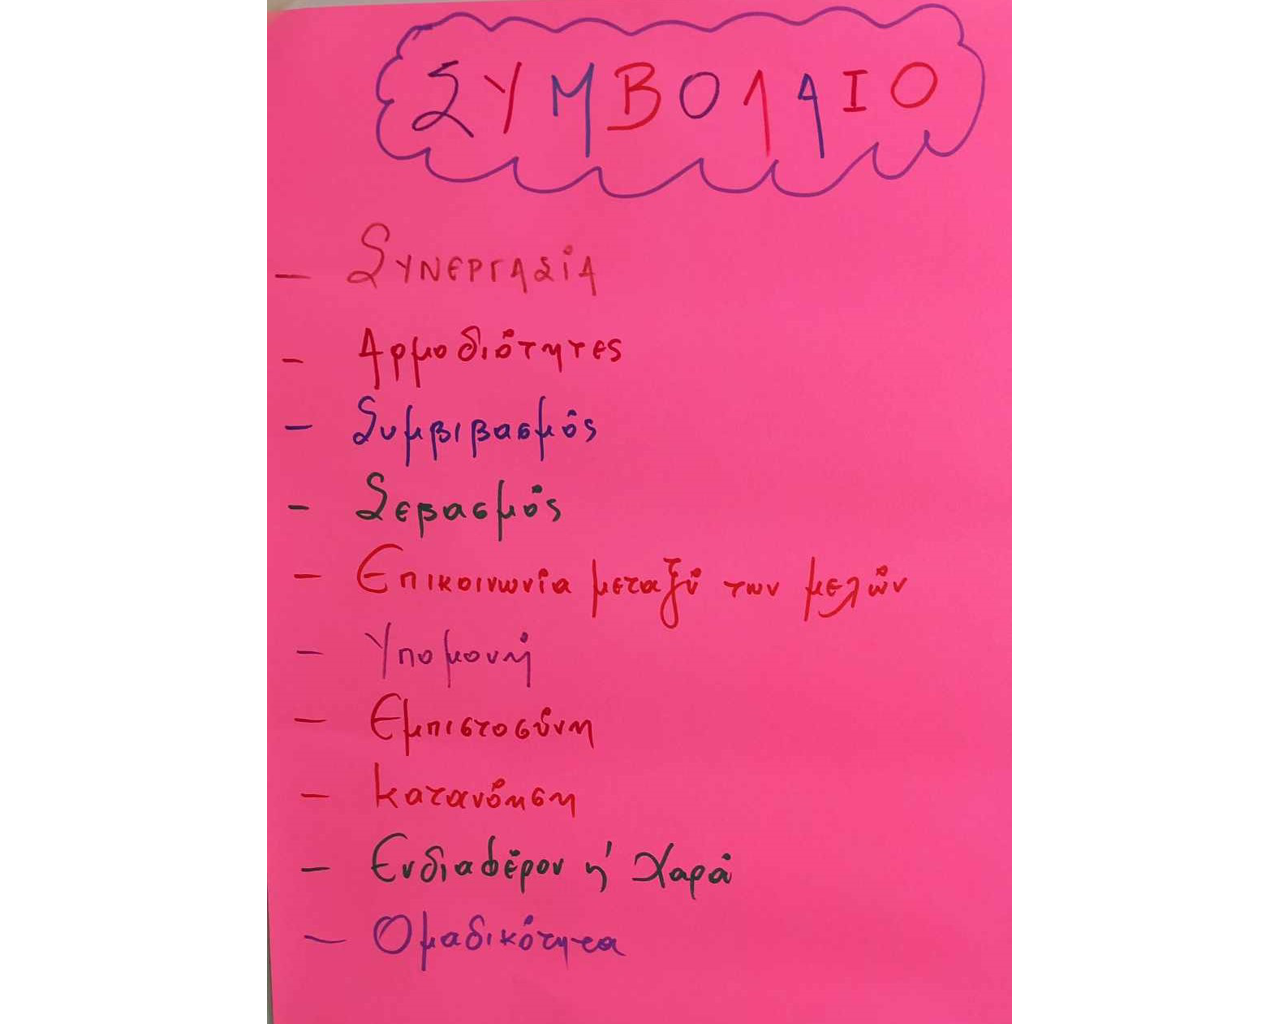 ΣΥΜΒΟΛΑΙΟ
- Συνεργασία
- Αρμοδιότητες
- Συμβιβασμός
- Σεβασμός
- Επικοινωνία μεταξύ των μελών
- Υπομονή
- Εμπιστοσύνη
- Κατανόηση
- Ενδιαφέρον ή Χαρά
- Ομαδικότητα